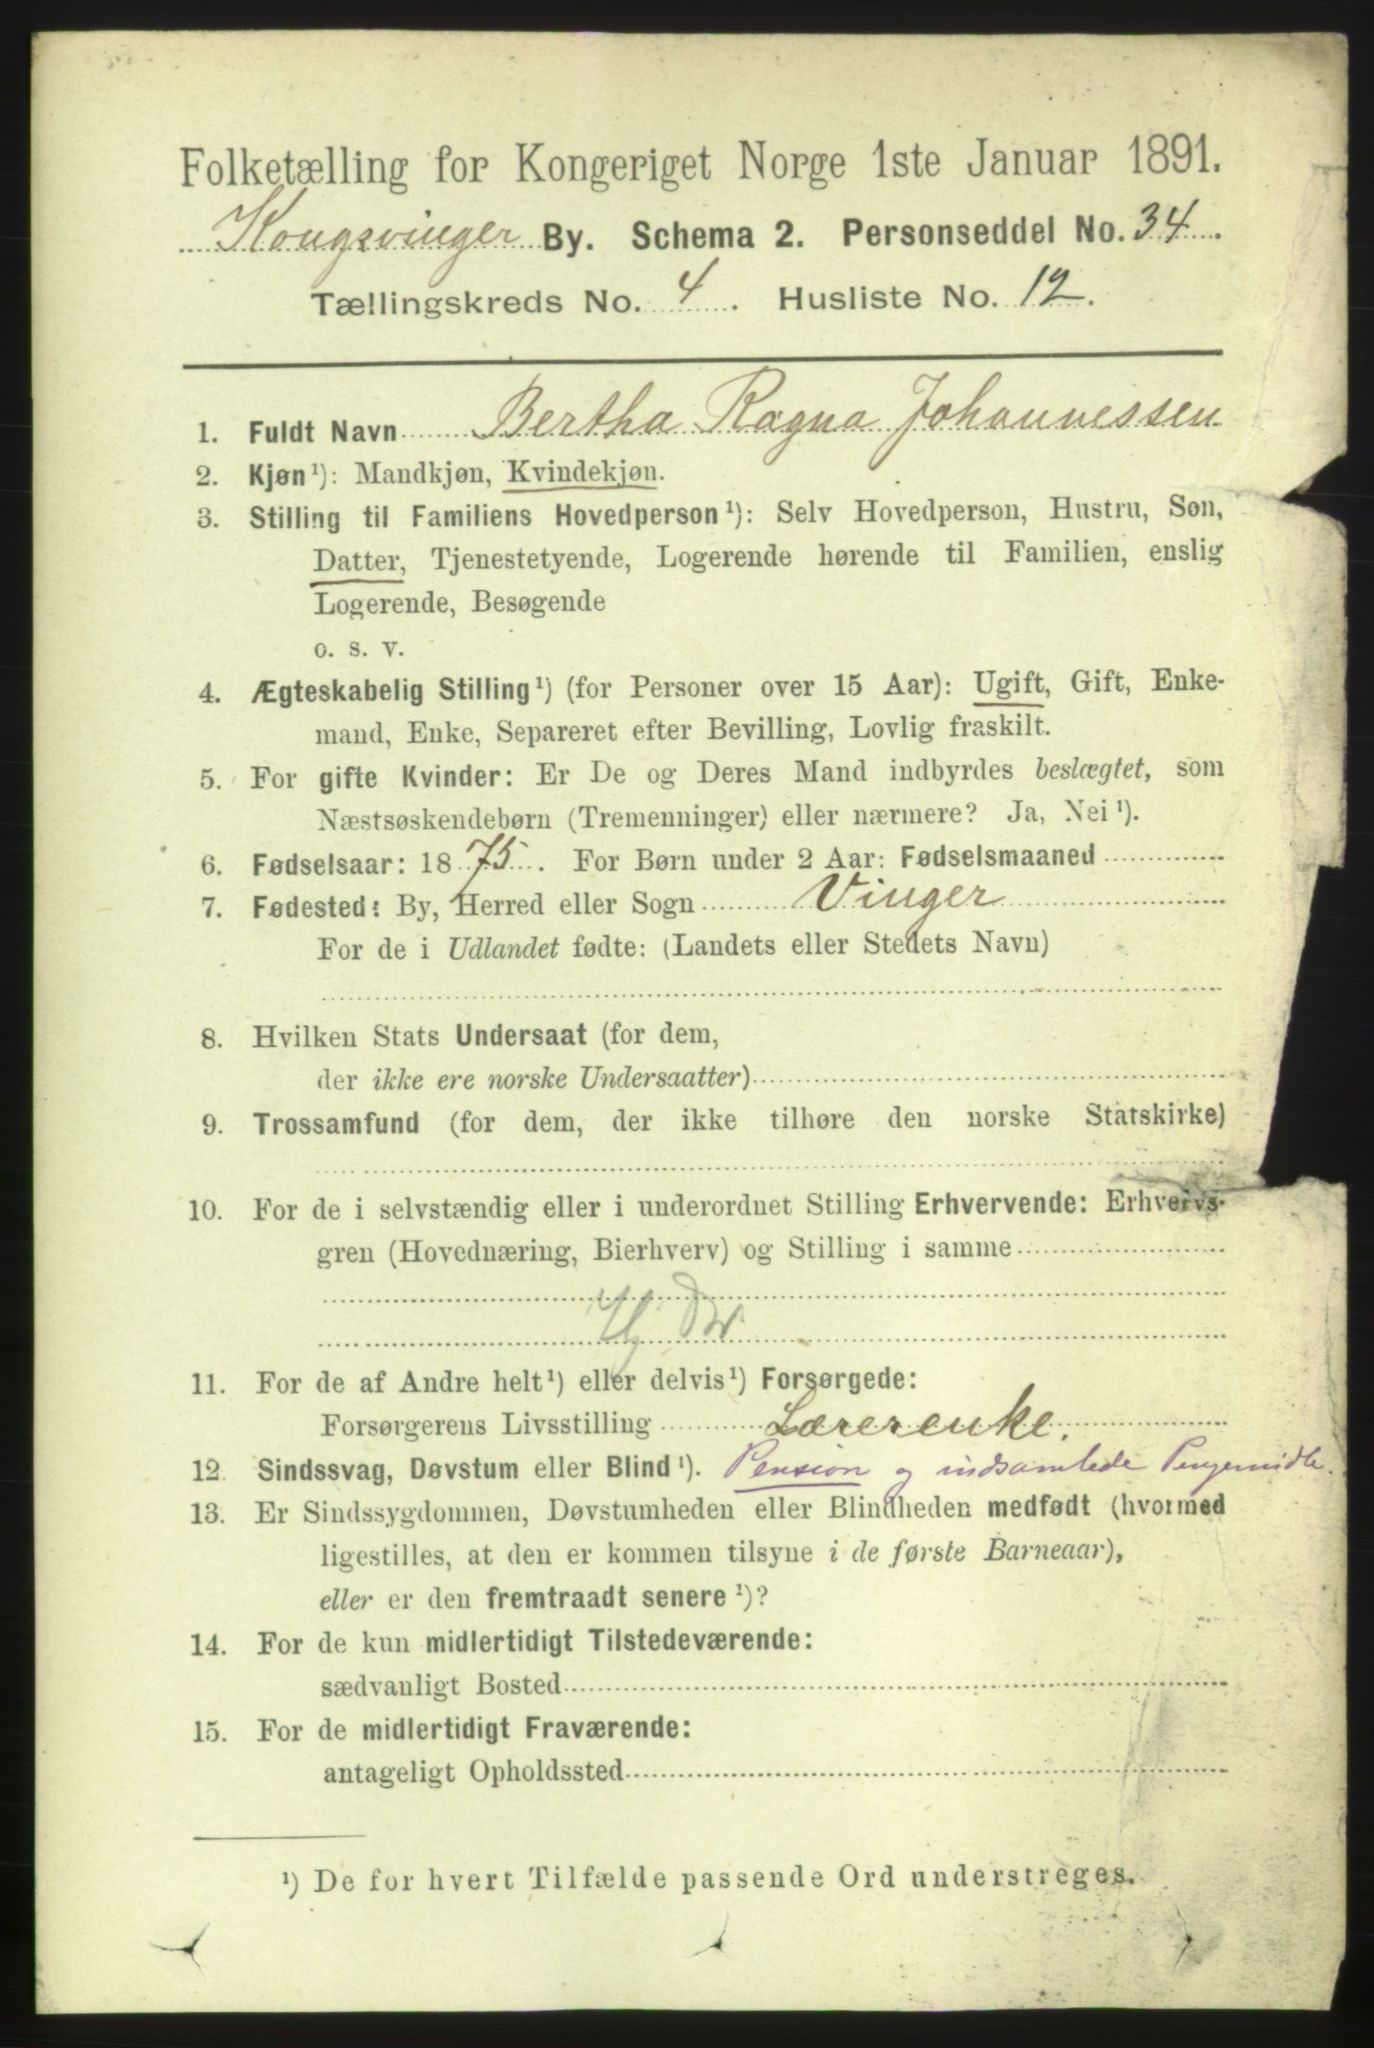 Folketælling for Kongeriget Norge 1ste Januar 1891.
Kongsvinger By. Schema 2. Personseddel No. 34.
Tællingskreds No. 4. Husliste No. 12.
1. Fuldt Navn Bertha Ragna Johannessen
2. Kjøn¹): Mandkjøn, Kvindekjøn.
3. Stilling til Familiens Hovedperson¹): Selv Hovedperson, Hustru, Søn,
Datter, Tjenestetyende, Logerende hørende til Familien, enslig
Logerende, Besøgende
o. s. v.
4. Ægteskabelig Stilling¹) (for Personer over 15 Aar): Ugift, Gift, Enke-
mand, Enke, Separeret efter Bevilling, Lovlig fraskilt.
5. For gifte Kvinder: Er De og Deres Mand indbyrdes beslægtet, som
Næstsøskendebørn (Tremenninger) eller nærmere? Ja, Nei¹).
6. Fødselsaar: 1875. For Børn under 2 Aar: Fødselsmaaned
7. Fødested: By, Herred eller Sogn Vinger
For de i Udlandet fødte: (Landets eller Stedets Navn)
8. Hvilken Stats Undersaat (for dem,
der ikke ere norske Undersaatter)
9. Trossamfund (for dem, der ikke tilhøre den norske Statskirke)
10. For de i selvstændig eller i underordnet Stilling Erhvervende: Erhvervs-
gren (Hovednæring, Bierhverv) og Stilling i samme
11. For de af Andre helt¹) eller delvis¹) Forsørgede:
Forsørgerens Livsstilling Lærerenke.
12. Sindssvag, Døvstum eller Blind¹). Pension og indsamlede Pengemidle.
13. Er Sindssygdommen, Døvstumheden eller Blindheden medfødt (hvormed
ligestilles, at den er kommen tilsyne i de første Barneaar),
eller er den fremtraadt senere¹)?
14. For de kun midlertidigt Tilstedeværende:
sædvanligt Bosted
15. For de midlertidigt Fraværende:
antageligt Opholdssted
¹) De for hvert Tilfælde passende Ord understreges.